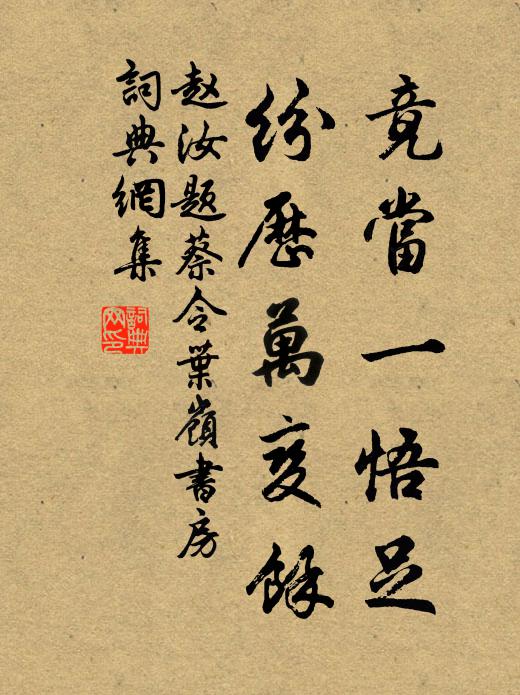 竟當一悟足
紛歷萬变餘
赵汝题蔡令葉嶺書房
詞典網集
詞典
网印